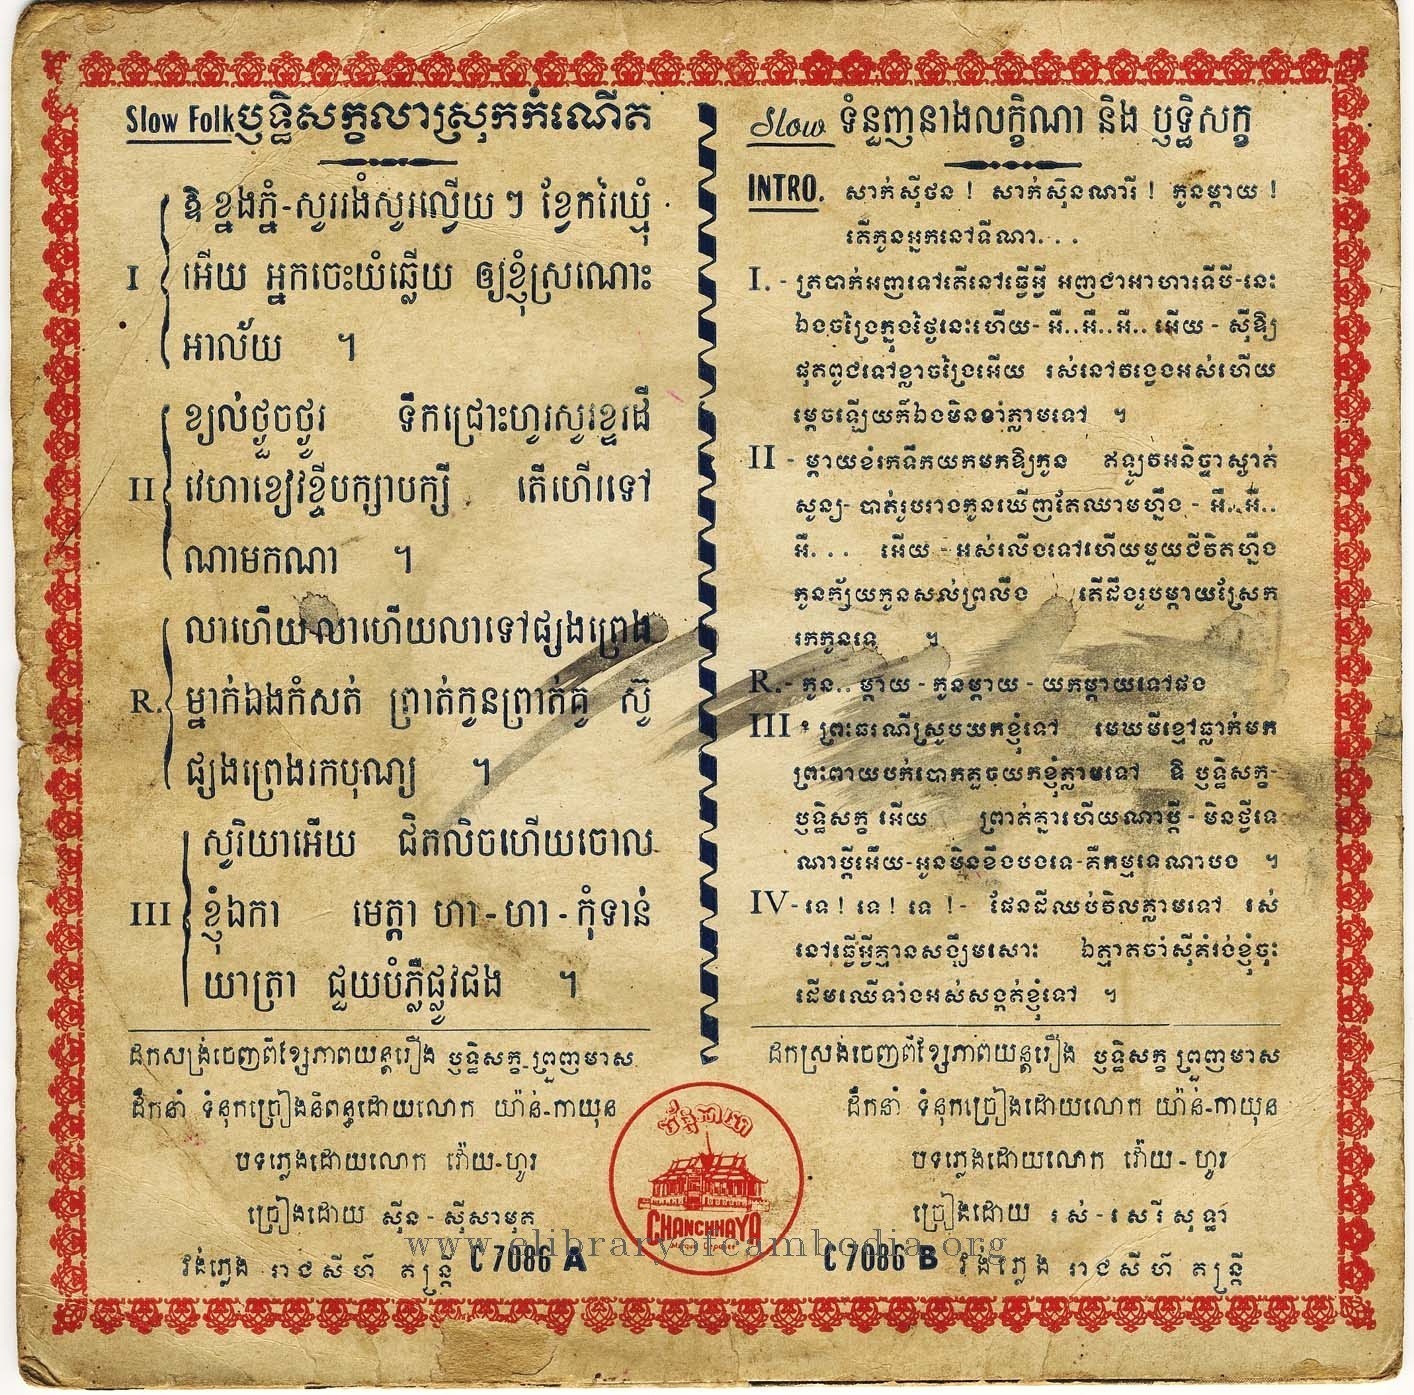 Slow Folk ឫទ្ធិសក្ខលាស្រុកកំណើត
I
ឱ ខ្នងភ្នំ-សូររងំសូរល្វើយ ៗ ខ្វែករៃឃ្មុំ
អើយ អ្នកចេះយំឆ្លើយ ឲ្យខ្ញុំស្រណោះ
អាល័យ ។
II
ខ្យល់ថ្ងួចថ្ងូរ ទឹកជ្រោះហូរសូរខ្ទរដី
វេហាខៀវខ្ចីបក្សាបក្សី តើហើរទៅ
ណាមកណា ។
R.
លាហើយលាហើយលាទៅផ្សងព្រេង
ម្នាក់ឯងកំសត់ ព្រាត់កូនព្រាត់គូ ស៊ូ
ផ្សងព្រេងរកបុណ្យ ។
III
សូរិយាអើយ ជិតលិចហើយចោល
ខ្ញុំឯកា មេត្តា ហា-ហា-កុំទាន់
យាត្រា ជួយបំភ្លឺផ្លូវផង ។
ដកសង្រ់ចេញពីខ្សែភាពយន្តរឿង ឫទ្ធិសក្ខ ព្រួញមាស
ដឹកនាំ ទំនុកច្រៀងនិពន្ធដោយលោក យ៉ាន់-កាយុន
បទភ្លេងដោយលោក វ៉ោយ-ហូរ
ច្រៀងដោយ ស៊ីន-ស៊ីសាមុត
វង់ភ្លេង រាជសីហ៍ តន្ត្រី C 7086 A
Slow ទំនួញនាងលក្ខិណា និង ឫទ្ធិសក្ខ
INTRO. សាក់ស៊ីថន ! សាក់ស៊ិនណារី ! កូនម្តាយ !
តើកូនអ្នកនៅទីណា...
I. - ត្របាក់អញទៅតើនៅធ្វើអ្វី អញជាអាហារទីបី-នេះ
ឯងចង្រៃក្នុងថ្ងៃនេះហើយ- អឺ..អឺ..អឺ.. អើយ - ស៊ីឱ្យ
ផុតពូជទៅខ្លាចង្រៃអើយ រស់នៅវង្វេងអស់ហើយ
ម្តេចឡើយក៏ឯងមិនខាំភ្លាមទៅ ។
II - ម្តាយខំរកទឹកយកមកឱ្យកូន ឥឡូវអនិច្ចាស្ងាត់
សូន្យ- បាត់រូបរាងកូនឃើញតែឈាមហ្នឹង - អឺ..អឺ..
អឺ... អើយ - អស់រលីងទៅហើយមួយជីវិតហ្នឹង
កូនក្ស័យកូនសល់ព្រលឹង តើដឹងរូបម្តាយស្រែក
រកកូនទេ ។
R.- កូន.. ម្តាយ - កូនម្តាយ - យកម្តាយទៅផង
III - ព្រះធរណីស្រូបយកខ្ញុំទៅ មេឃមីខ្មៅធ្លាក់មក
ព្រះពាយបក់បោកគួចយកខ្ញុំភ្លាមទៅ ឱ ឫទ្ធិសក្ខ-
ឫទ្ធិសក្ខ អើយ ព្រាត់គ្នាហើយណាប្តី - មិនថ្វីទេ
ណាប្តីអើយ-អូនមិនខឹងបងទេ-គឺកម្មទេណាបង ។
IV - ទេ ! ទេ ! ទេ !- ផែនដីឈប់វិលភ្លាមទៅ រស់
នៅធ្វើអ្វីគ្មានសង្ឃឹមសោះ ឯត្មាតចាំស៊ីគំរង់ខ្ញុំចុះ
ដើមឈើទាំងអស់សង្កត់ខ្ញុំទៅ ។
ដកស្រង់ចេញពីខ្សែភាពយន្តរឿង ឫទ្ធិសក្ខ ព្រួញមាស
ដឹកនាំ ទំនុកច្រៀងដោយលោក យ៉ាន់-កាយុន
បទភ្លេងដោយលោក វ៉ោយ-ហូរ
ច្រៀងដោយ រស់-សេរីសុទ្ធា
C 7086 B វង់ភ្លេង រាជសីហ៍ តន្ត្រី
ច័ន្ទឆាយា
CHANCHHAYA
www.elibraryofcambodia.org